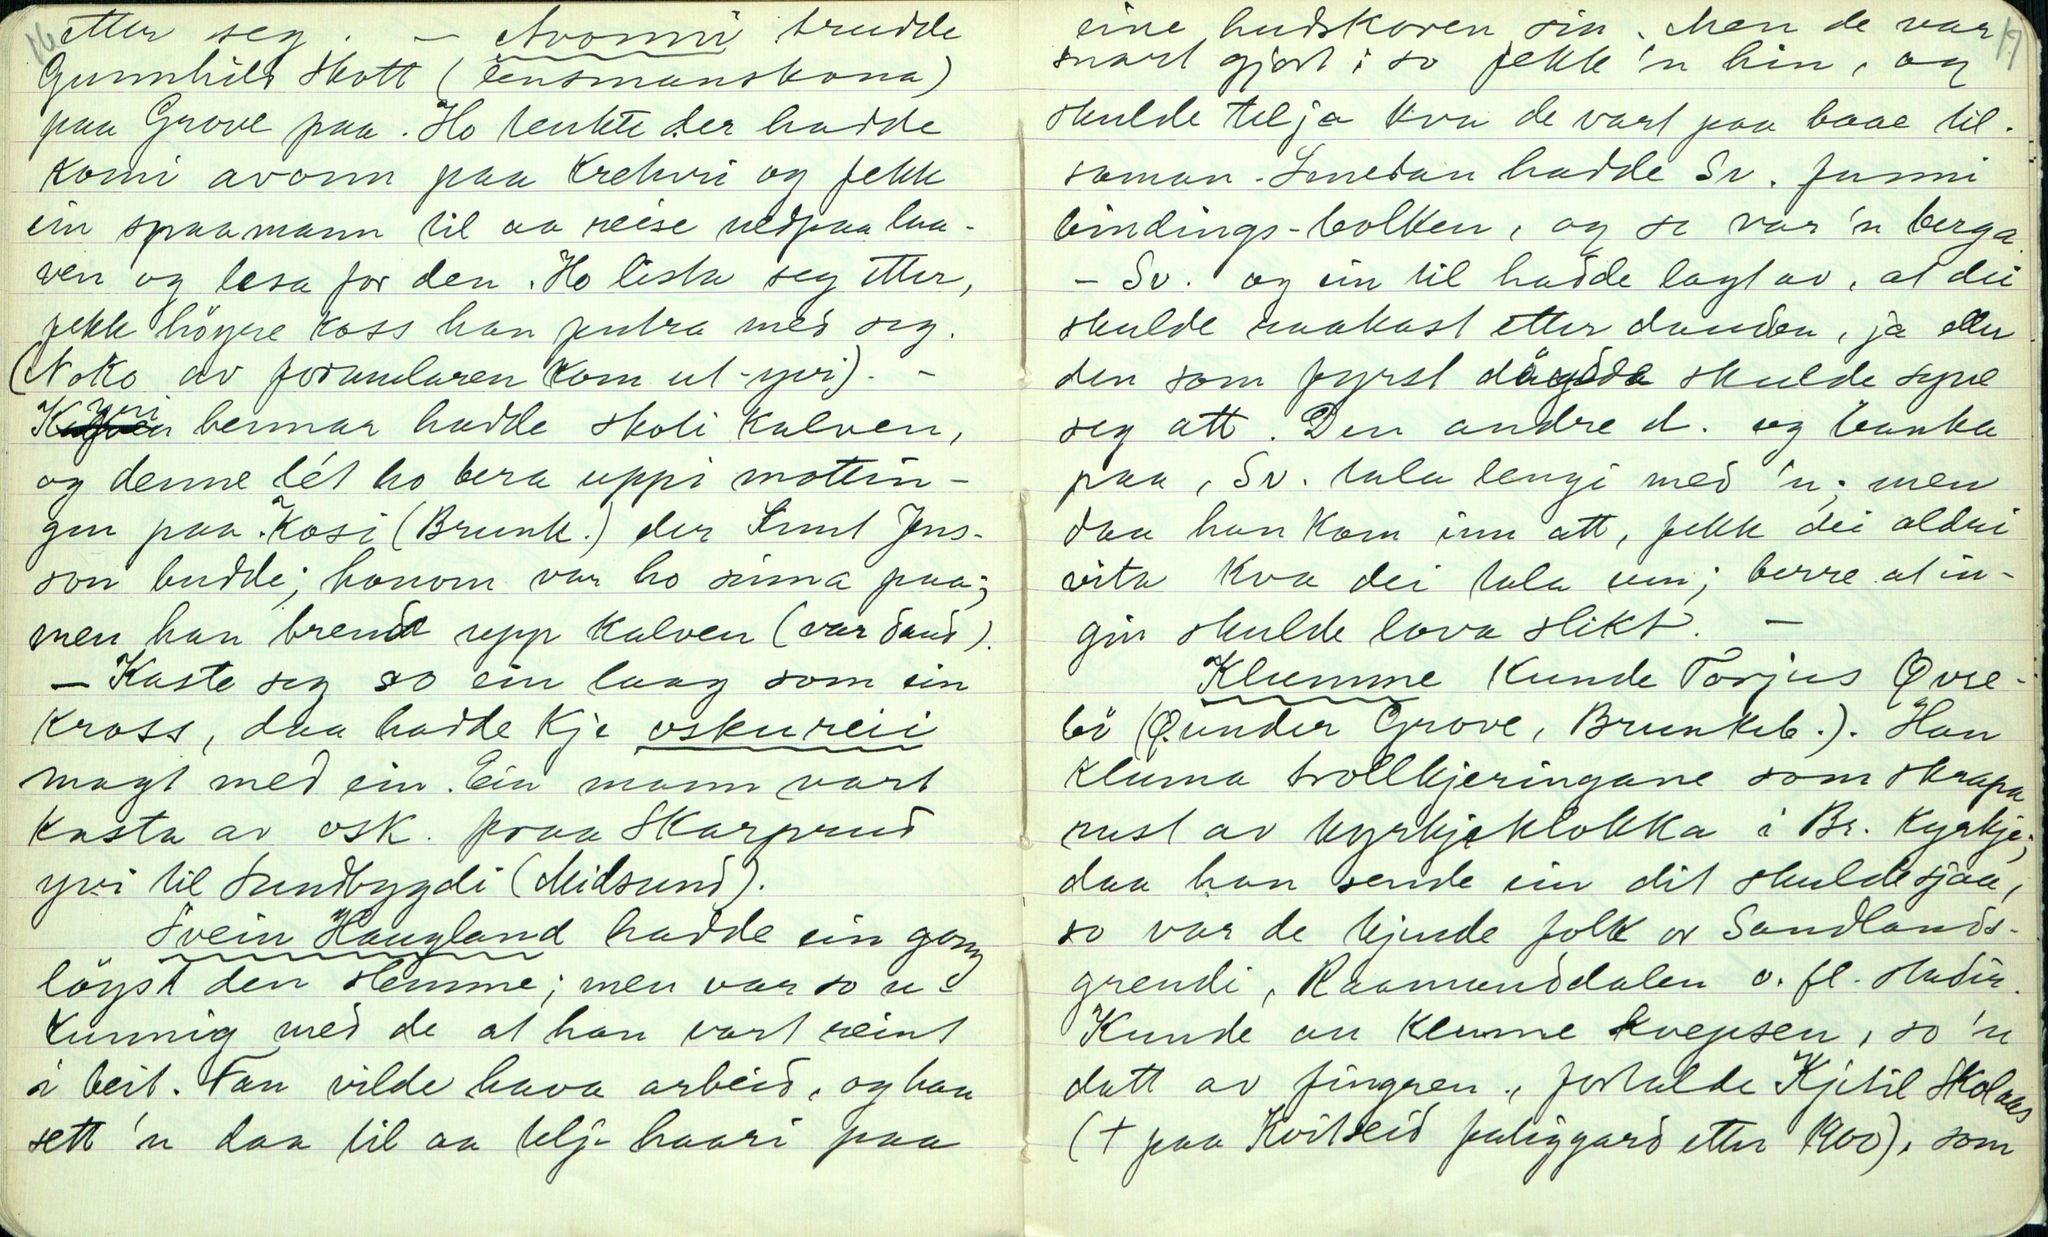 16
etter seg. — Avonni trudde
Gunnhild Skott (lensmanskona)
paa Grove paa. Ho tenkte der hadde
komi avonn paa krekvri og fekk
ein spaamann til aa reise nedpaa laa-
ven og lesa for den. Ho lista seg etter,
fekk höyre koss han putra med seg.
(Noko av formularen kom ut-yvi). —
yvi
hennar hadde skoli kalven,
og denne lét ho bera uppi mottin-
gen paa Kosi (Brunk.) der Knut Jens-
son budde; honom var ho sinna paa;
men han brende upp kalven (var daud).
— Kaste seg so ein laag som ein
kross, daa hadde kje oskureii
magt med ein. Ein mann vart
kasta av osk. fraa Skarprud
yvi til Sundbygdi (Midsund).
Svein Haugland hadde ein gong
löyst den slemme; men var so u-
kunnig med de at han vart reint
i beit. Fan vilde hava arbeid, og han
sett 'n daa til aa telje haari paa
17
eine hudskoren sin. Men de var
snart gjort; so fekk 'n hin, og
skulde telja kva de vart paa baae til-
saman. Smedan hadde Sv. funni
bindings-bolken, og so var 'n berga.
— Sv. og ein til hadde lagt av, at dei
skulde raakast etter dauden, ja eller
den som fyrst döydde skulde syne
seg att. Den andre d. og banka
paa, Sv. tala lengi med 'n; men
daa han kom inn att, fekk dei aldri
vita kva dei tala um; berre at in-
gin skulde lova slikt. —
Klumme kunde Torjus Øvre-
bö (Ø. under Grove, Brunkeb.). Han
kluma trollkjeringane som skrapa
rust av kyrkjeklokka i Br. kyrkje;
daa han sende ein dit skulde sjaa,
so var de kjende folk or Sandlands-
grendi, Raamunddalen o. fl. stadir.
Kunde au klumme kvepsen, so 'n
datt av fingren, fortalde Kjetil Skolaas
(+ paa Kvitseid fatiggard etter 1900), som